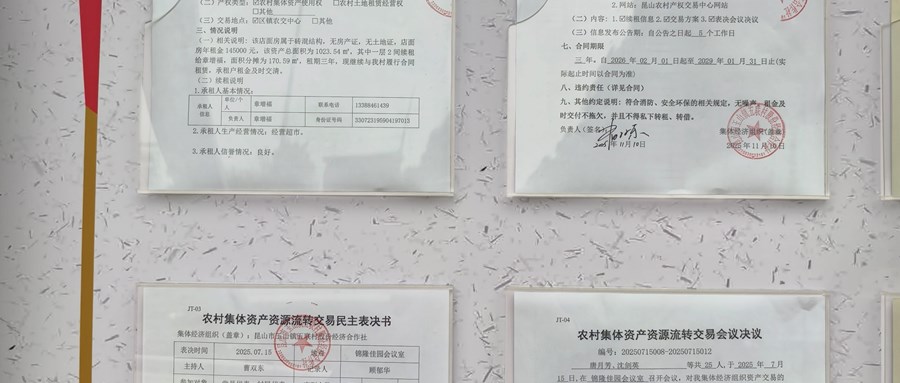 (二)产权类型:☑农村集体资产使用权 ☐农村土地租赁经营权
☐其他
(三)交易地点:☑区镇农交中心 ☐其他
三、情况说明
(一)相关说明:该店面房属于砖混结构,无房产证,无土地证,店面
房年租金 145000 元,该资产总面积为 1023.54 ㎡,其中一层 2 间续租
给章增福,面积分摊为 170.59 ㎡,租期三年,现继续与我村履行合同
租赁,承租户租金及时交清。
(二)续租说明
1.承租人基本情况:
承租人信息
单位/个人
章增福
联系电话
13388461439
负责人
章增福
身份证号码
330723195904197013
2.承租人生产经营情况:经营超市。
3.承租人信誉情况:良好。
2.网站:昆山农村产权交易中心网站
(二)内容:1.☑续租信息 2.☑交易方案 3.☑表决会议决议
(三)信息发布公告期:自公告之日起 5 个工作日
七、合同期限
三 年。自 2026 年 02 月 01 日起至 2029 年 01 月 31 日止(实
际起止时间以合同为准)
八、违约责任(详见合同)
九、其他约定说明:符合消防、安全环保的相关规定,无噪声,租金及
时交付不拖欠,并且不得私下转租、转借。
负责人(签名)
集体经济组织(盖章)
2025年11月10日
2025 年 11 月 10 日
JT-03
农村集体资产资源流转交易民主表决书
集体经济组织(盖章):昆山市玉山镇 合经济合作社
表决时间
2025.07.15
地点
锦隆佳园会议室
主持人
曹双东
记录人
顾郁华
JT-04
农村集体资产资源流转交易会议决议
编号:20250715008-20250715012
唐月芳,沈剑英 等共 25 人,于 2025 年 7 月
15 日,在 锦隆佳园会议室 召开会议,对我集体经济组织资产交易的